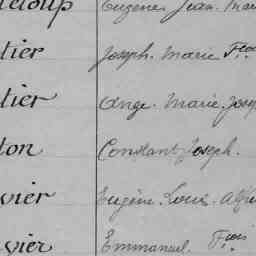 eloup Eugène Jean Mar
tier Joseph Marie Fçois
tier Ange Marie Josep
ton Constant Joseph.
vier Eugène Louis Alfre
vier Emmanuel Fçois